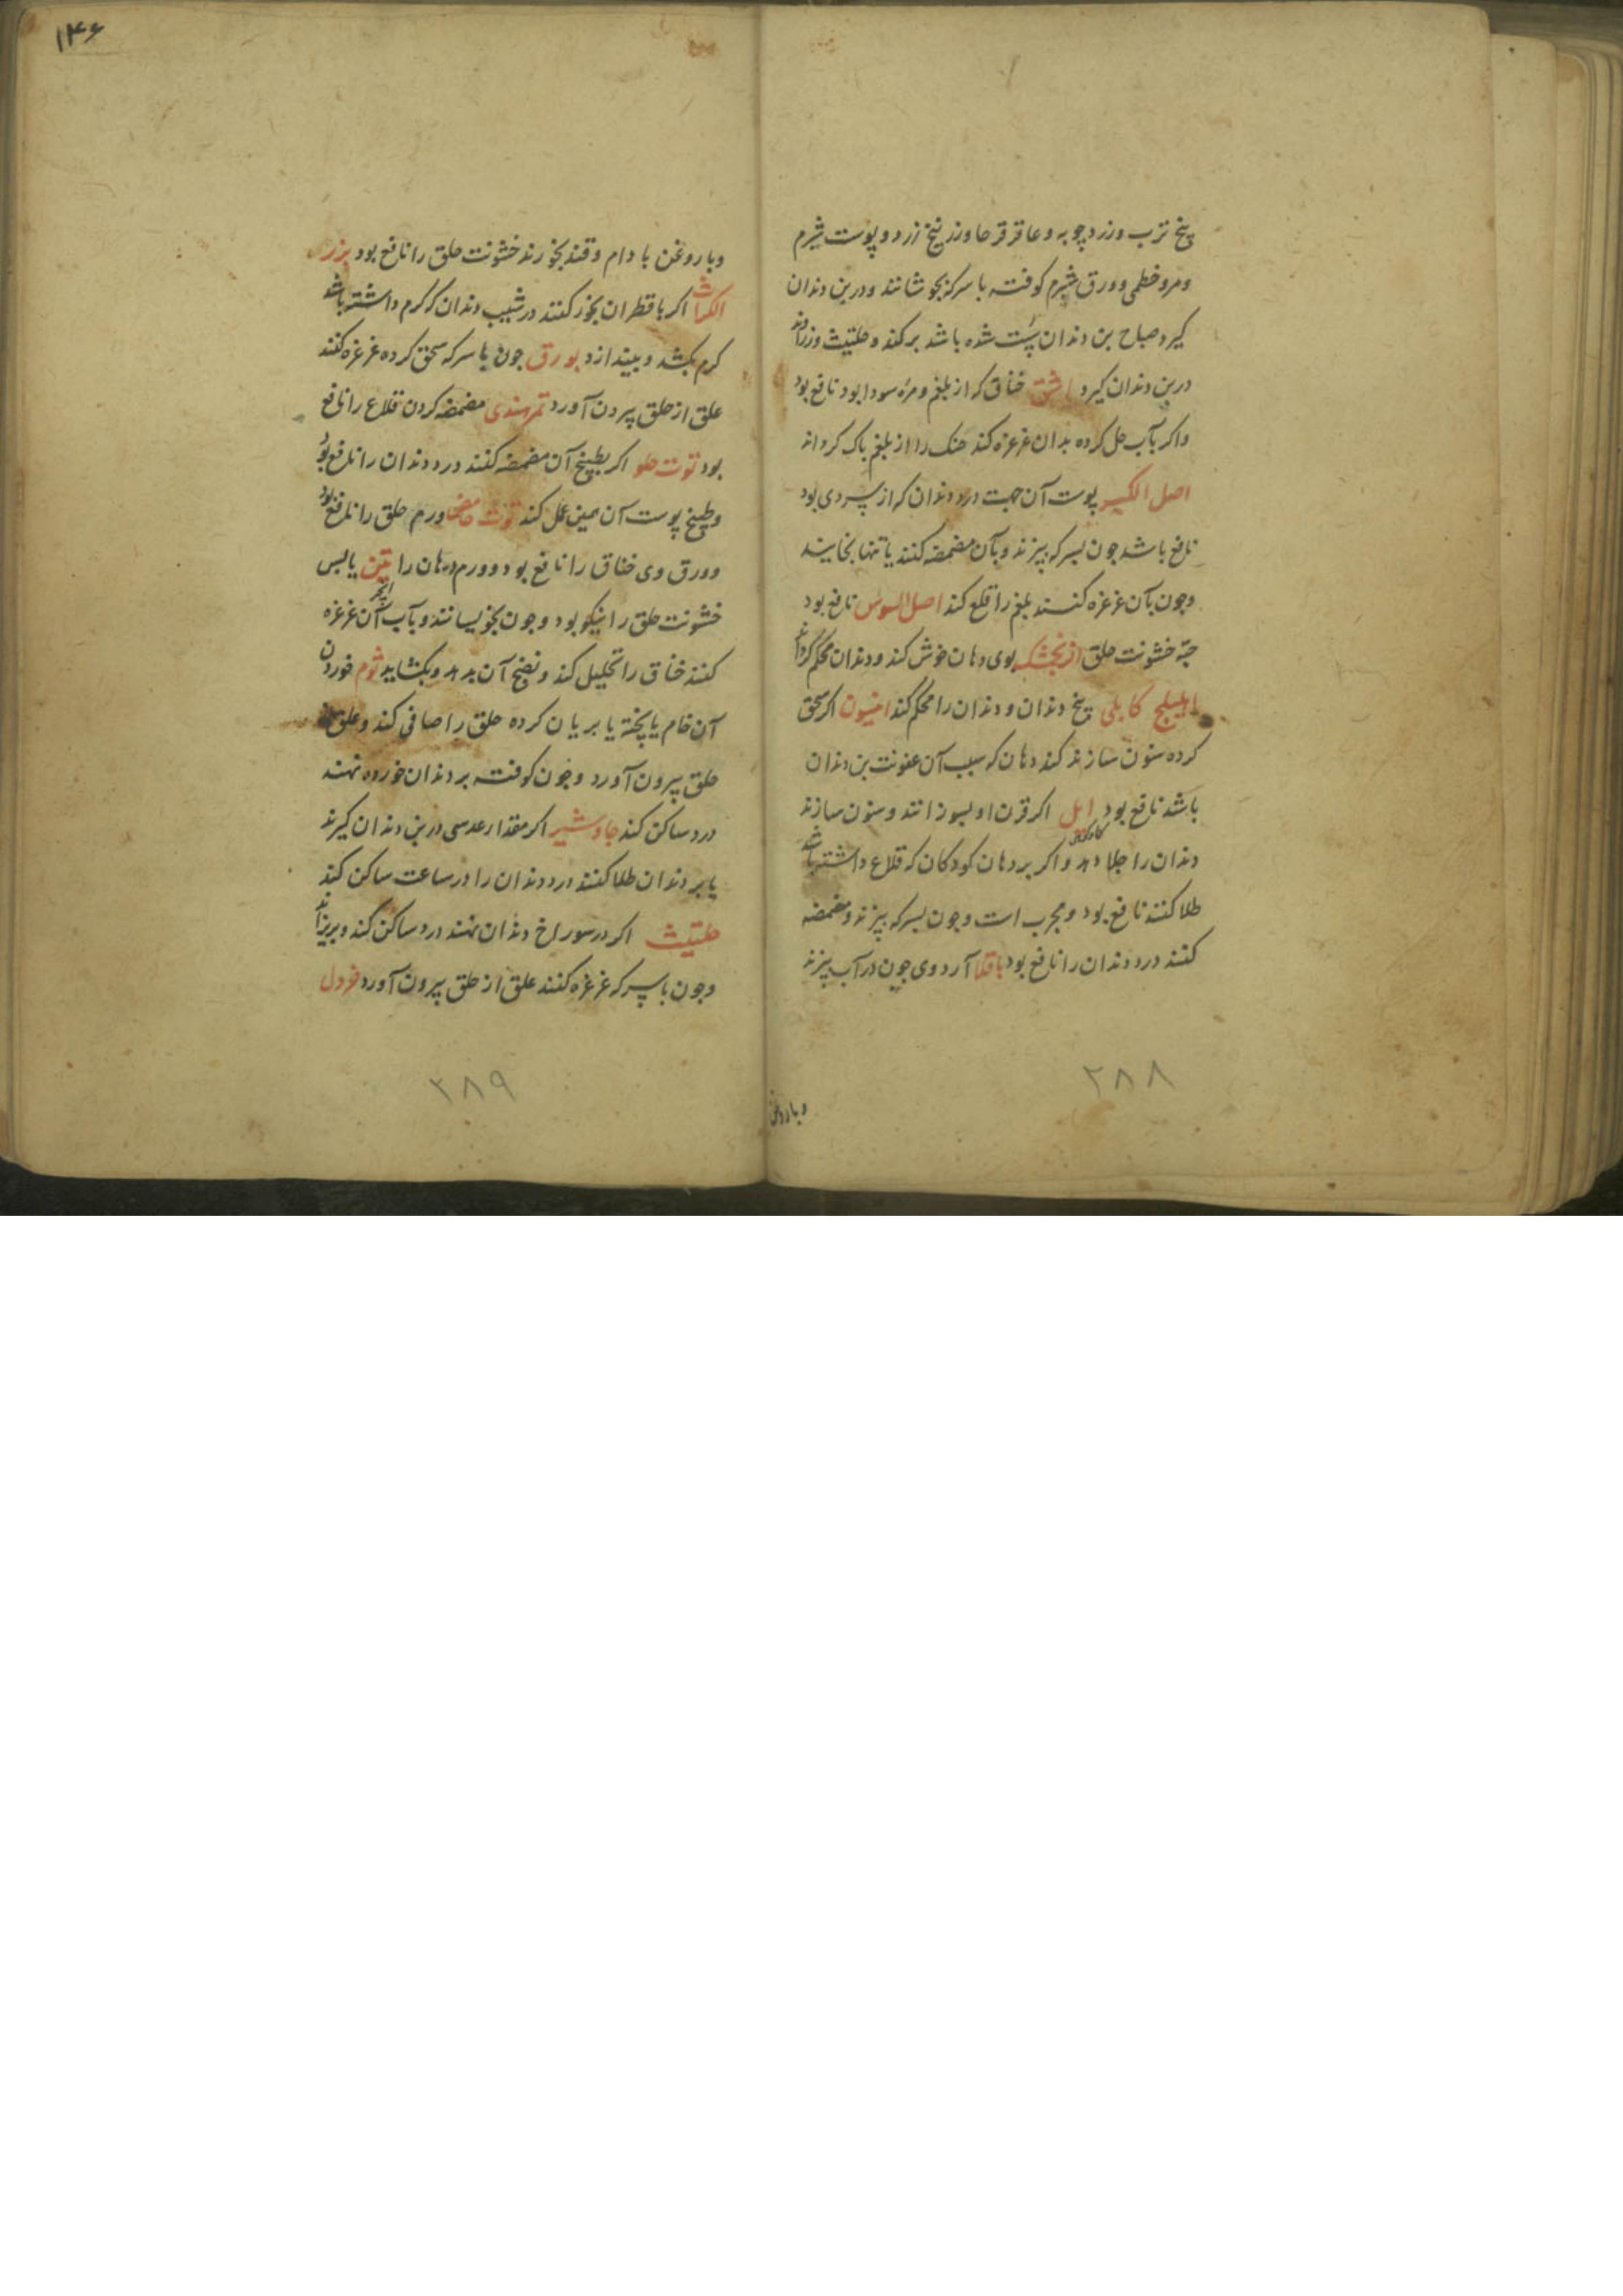 بیخ ترب و زردچوبه و عاقرقرحا و زرنیخ زرد و پوست شبرم
و مرو خطمی و ورق شبرم کوفته با سرکه بجوشانند و در بن دندان
کیرد صباح بن دندان سست شده باشد برکند و حلتیت و زراوند
در بن دندان کیرد اشق خناق که از بلغم و مره سودا بود نافع بود
واکر بآب حل کرده بدان غرغره کند حنک را از بلغم پاک کرداند
اصل الکبر پوست آن جهت درد دندان که از سردی بود
نافع باشد جون بسرکه بپزند و بآن مضمضه کنند یا تنها بخایند
وجون بآن غرغره کنند بلغم را قلع کند اصل السوس نافع بود
جهة خشونت حلق افرنجمشک بوی دهان خوش کند و دندان محکم کرداند
اهلیلج کابلی بیخ دندان و دندان را محکم کند انیسون اکر سحق
کرده سنون سازند کند دهان که سبب آن عفونت بن دندان
باشد نافع بود ایل کاوکوهی اکر قرن او بسوزانند و سنون سازند
دندان را جلا دهد و اکر بر دهان کودکان که قلاع داشته باشد
طلا کنند نافع بود و مجرب است وجون بسرکه بپزند و مضمضه
کنند درد دندان را نافع بود باقلا آرد وی جون در آب بپزند
۲۸۸
و با روغن
۱۴۶
و با روغن بادام و قند بخورند خشونت حلق را نافع بود بزر
الکراث اکر با قطران بخور کنند در شیب دندان که کرم داشته باشد
کرم بکشد و بیندازد بورق جون با سرکه سحق کرده غرغره کنند
علق از حلق بیرون آورد تمر هندی مضمضه کردن قلاع را نافع
بود توت حلو اکر بطبیخ آن مضمضه کنند درد دندان را نافع بود
و طبیخ پوست آن همین عمل کند توت حامض ورم حلق را نافع بود
و ورق وی خناق را نافع بود و ورم دهان را تین انجیر یابس
خشونت حلق را نیکو بود و جون بخویسانند و بآب آن غرغره
کنند خناق را تحلیل کند و نضج آن بدهد و بکشاید ثوم خوردن
آن خام یا پخته یا بریان کرده حلق را صافی کند و علق از
حلق بیرون آورد وجون کوفته بر دندان خورده نهند
درد ساکن کند جاوشیر اکر مقدار عدسی در بن دندان کیرند
یا بر دندان طلا کنند درد دندان را در ساعت ساکن کند
حلتیث اکر در سوراخ دندان نهند درد ساکن کند و بریزاند
وجون با سرکه غرغره کنند علق از حلق بیرون آورد خردل
۲۸۹